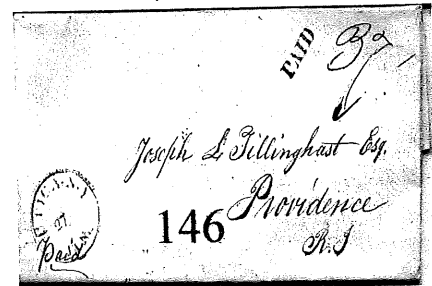 PAID
37
Joseph L Tillinghast Esq.
Providence
R.I
UTICA N.Y
27
Paid
146